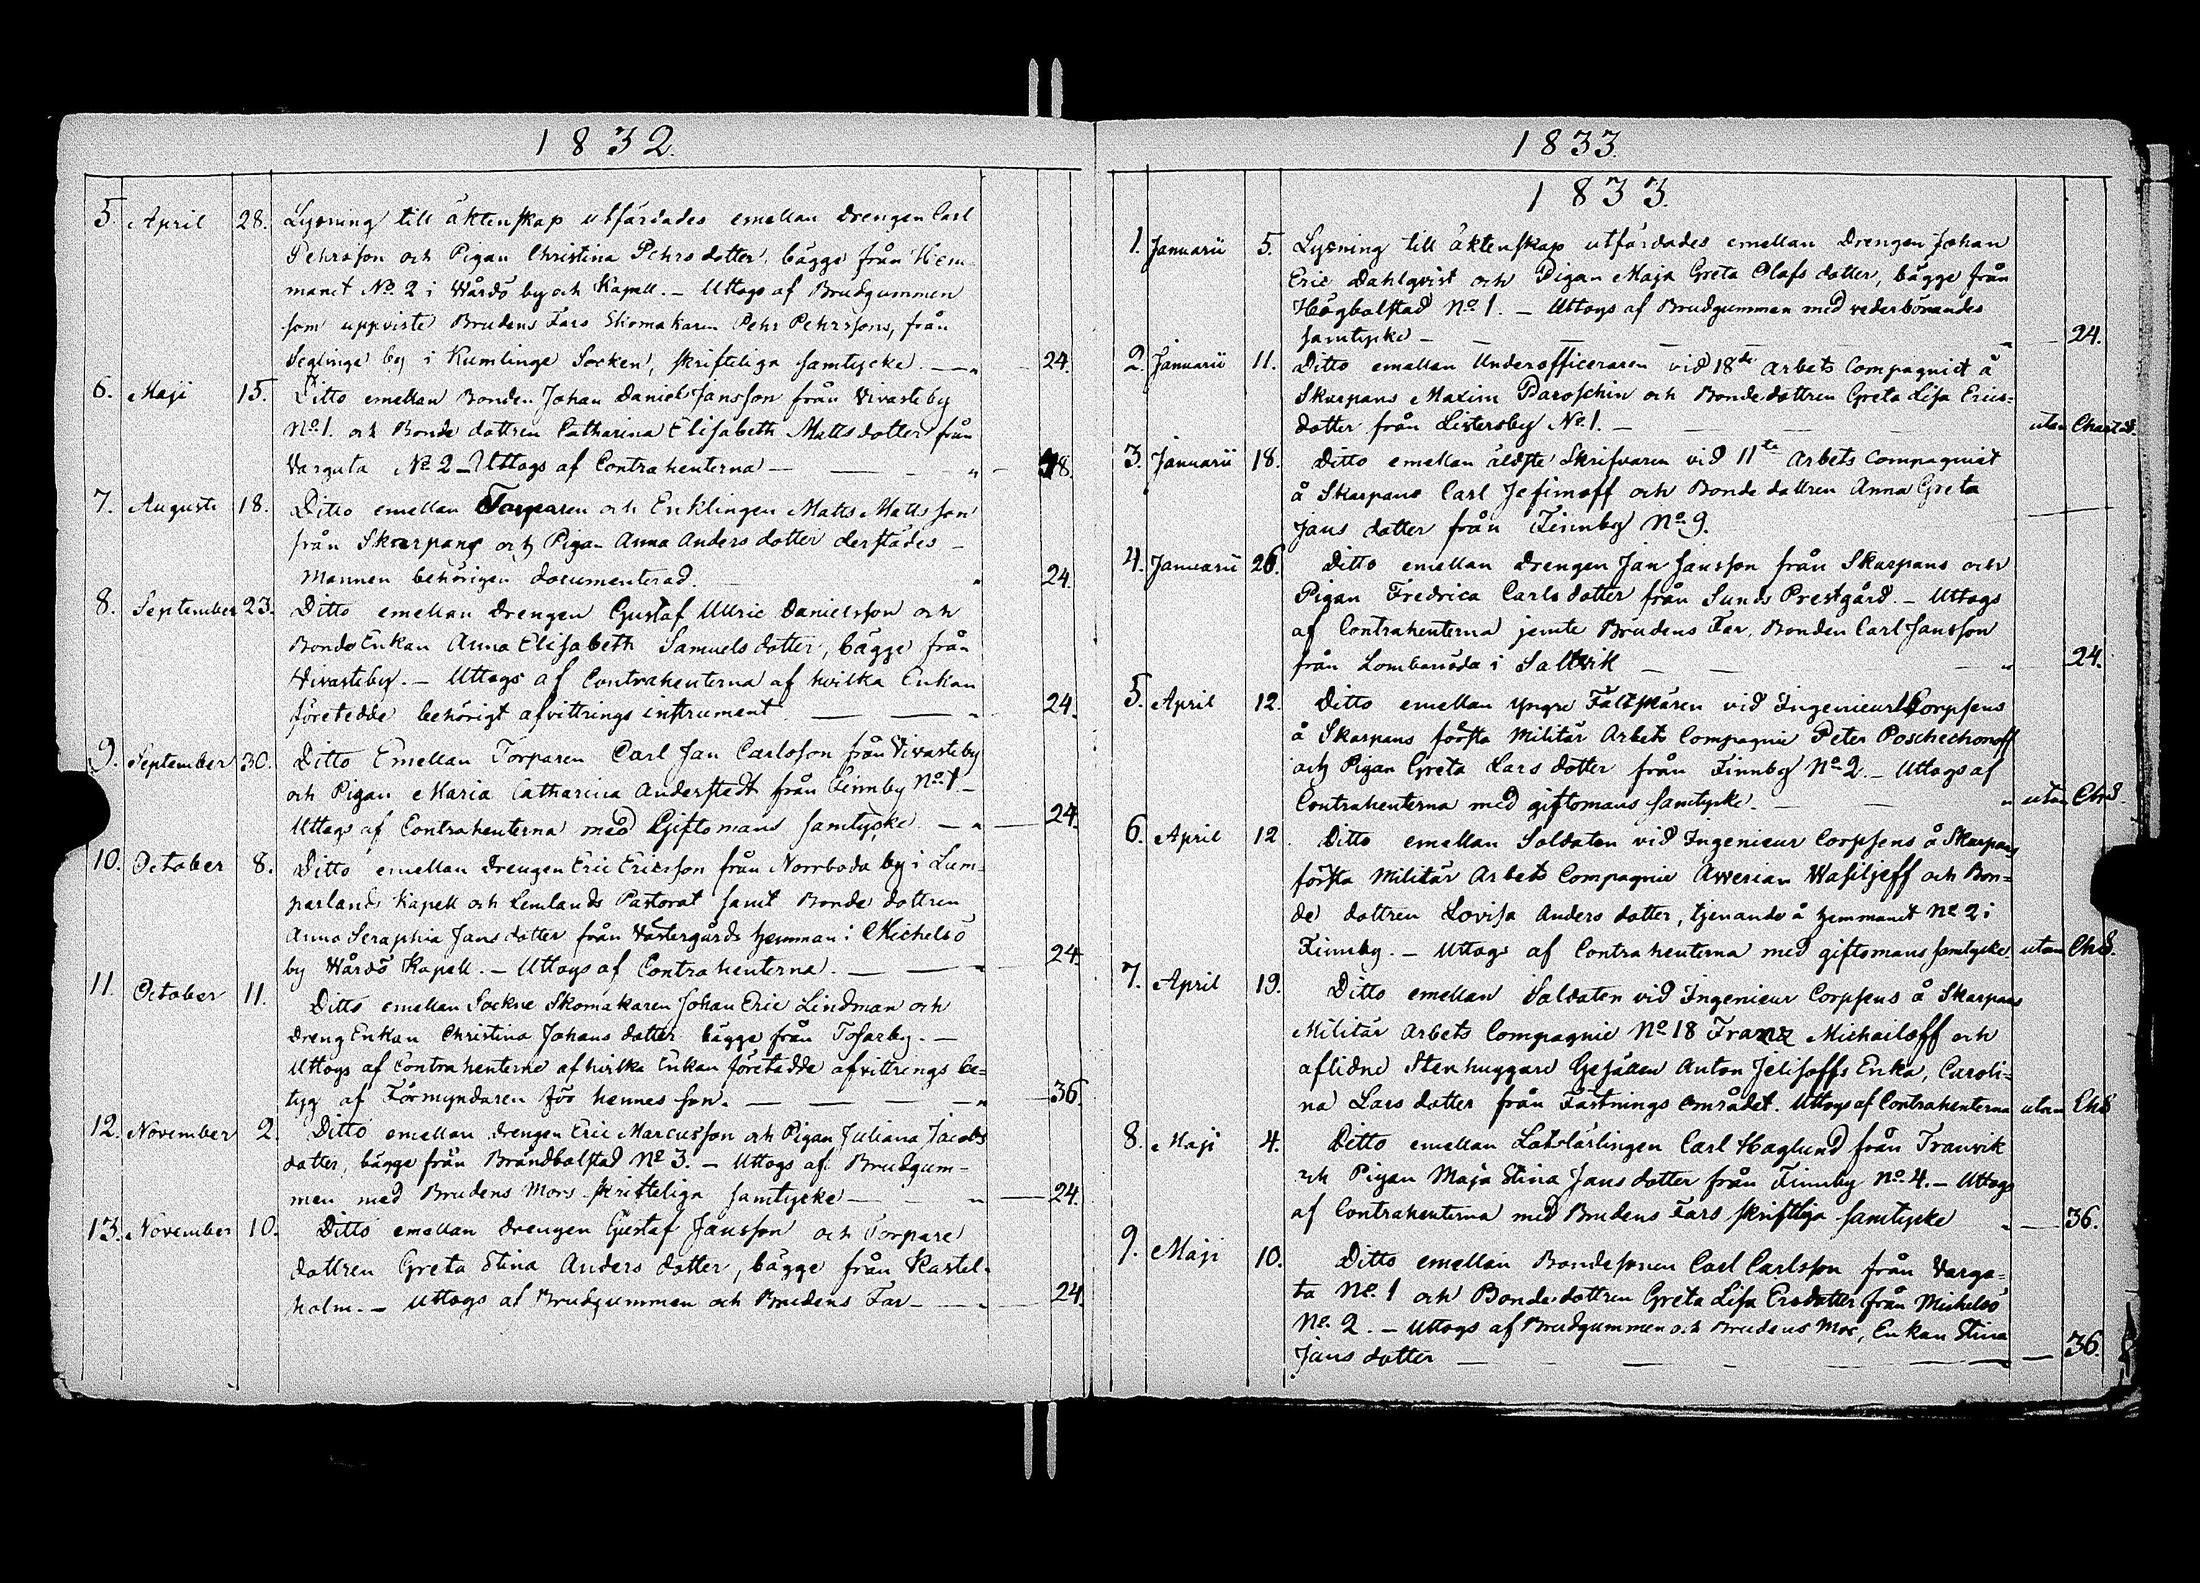 1832.
5. April 28. Lysning till äktenskap utfärdades emellan Drengen Carl
Pehrsson och Pigan Christina Pehrs dotter, bägge från Hem-
manet No. 2 i Wårdö by och Kapell. - Uttogs af Brudgummen
som uppviste Brudens Fars Skomakaren Pehr Pehrssons, från
Seglinge by i Kumlinge Socken, skrifteliga samtycke. — " — 24.
6. Maji 15. Ditto emellan Bonden Johan Daniel Jansson från Vivasteby
No. 1. och Bonde dottren Catharina Elisabeth Matts dotter från
Vargata No. 2 - Uttogs af Contrahenterna — — " — 48.
7. Augusti 18. Ditto emellan Torparen och Enklingen Matts Mattsson
från Skarpans och Pigan Anna Anders dotter derstädes -
Mannen behörigen documenterad. " 24.
8. September 23. Ditto emellan Drengen Gustaf Ullric Danielsson och
Bonde Enkan Anna Elisabeth Samuels dotter, bägge från
Vivasteby. - Uttogs af Contrahenterna af hvilka Enkan
företedde behörigt afvittrings instrument — — " 24.
9. September 30. Ditto Emellan Torparen Carl Jan Carlsson från Vivasteby
och Pigan Maria Catharina Anderstedt från Finnby No. 1 -
Uttogs af Contrahenterna med Giftomans samtycke — " — 24.
10. October 8. Ditto emellan Drengen Eric Ericsson från Norrboda by i Lum-
parlands Kapell och Lemlands Pastorat samt Bonde dottren
Anna Seraphia Jans dotter från Västergårds hemman i Michelsö
by Wårdö Kapell. - Uttogs af Contrahenterna. — — " 24
11. October 11. Ditto emellan Sockne Skomakaren Johan Eric Lindman och
Dreng Enkan Christina Johans dotter bägge från Tosarby. -
Uttogs af Contrahenterna af hvilka Enkan företedde afvittrings be-
tyg af Förmyndaren för hennes son. — — — " — 36.
12. November 2. Ditto emellan Drengen Eric Marcusson och Pigan Juliana Jacobs
dotter, bägge från Brändbolstad No. 3. - Uttogs af Brudgum-
men med Brudens Mors skrifteliga samtycke — " — 24.
13. November 10. Ditto emellan Drengen Gustaf Jansson och Torpare
dottren Greta Stina Anders dotter, bägge från Kastel-
holm. - Uttogs af Brudgummen och Brudens Far — " — 24.
1833.
1833.
1. Januarii 5. Lysning till äktenskap utfärdades emellan Drengen Johan
Eric Dahlqvist och Pigan Maja Greta Olafs dotter, bägge från
Högbolstad No. 1. - Uttogs af Brudgummen med vederbörandes
samtycke — — — — " — 24.
2. Januarii 11. Ditto emellan Underofficeraren vid 18de Arbets Compagniet å
Skarpans Maxim Paroschin och Bondedottren Greta Lisa Erics-
dotter från Listersby No. 1. — utan Chart S.
3. Januarii 18. Ditto emellan äldste Skrifvaren vid 11te Arbets Compagniet
å Skarpans Carl Jefimoff och Bonde dottren Anna Greta
Jans dotter från Finnby No. 9. —
4. Januarii 26. Ditto emellan Drengen Jan Jansson från Skarpans och
Pigan Fredrica Carls dotter från Sunds Prestgård. - Uttogs
af Contrahenterna jemte Brudens Far, Bonden Carl Jansson
från Lomböda i Saltvik — — " 24.
5. April 12. Ditto emellan yngre Fältskären vid Ingenieur Corpsens
å Skarpans första Militär Arbets Compagnie Peter Poschechonoff
och Pigan Greta Lars dotter från Finnby No. 2. - Uttogs af
Contrahenterna med giftomans samtycke. — " utan Ch S.
6. April 12. Ditto emellan Soldaten vid Ingenieur Corpsens å Skarpans
första Militär Arbets Compagnie Awerian Wasiljeff och Bon-
de dottren Lovisa Anders dotter, tjenande å hemmanet No. 2 i
Finnby. - Uttogs af Contrahenterna med giftomans samtycke utan Ch S.
7. April 19. Ditto emellan Soldaten vid Ingenieur Corpsens å Skarpans
Militär Arbets Compagnie No. 18 Franz Michailoff och
aflidne Stenhuggare Gesällen Anton Jelisoffs Enka, Caroli-
na Lars dotter från Fästnings området. Uttogs af Contrahenterna utan Ch S
8. Maji 4. Ditto emellan Lotslärlingen Carl Haglund från Tranvik
och Pigan Maja Stina Jans dotter från Finnby No. 4. - Uttogs
af Contrahenterna med Brudens Fars skriftliga samtycke " — 36.
9. Maji 10. Ditto emellan Bondesonen Carl Carlsson från Varga-
ta No. 1 och Bonde dottren Greta Lisa Ersdotter från Michelsö
No. 2. - Uttogs af Brudgummen och Brudens Mor, Enkan Stina
Jans dotter — — — — — 36.